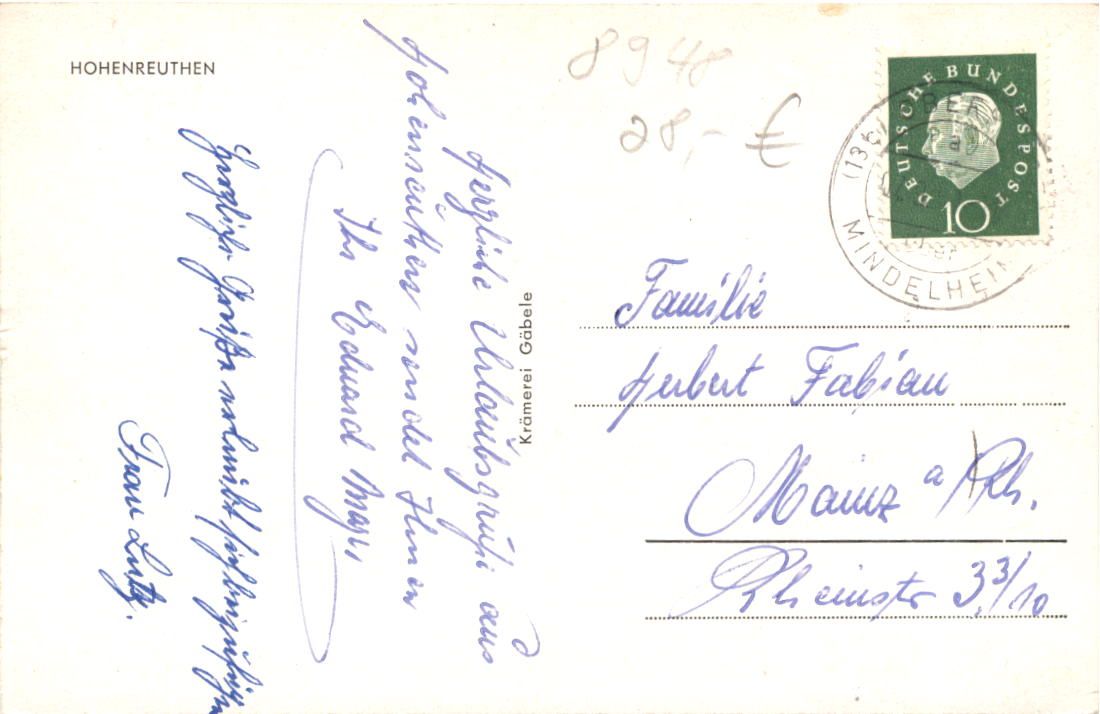 HOHENREUTHEN
Herzliche Urlaubsgrüße aus
Hohenreuthen sendet Ihnen
Ihr Eduard
Herzliche Grüße
Frau Lutz.
Krämerei Gäbele
8948
28,- €
DEUTSCHE BUNDESPOST
10
MINDELHEIM
Familie
Herbert Fabian
Mainz a/Rh.
Rheinstr 33/10